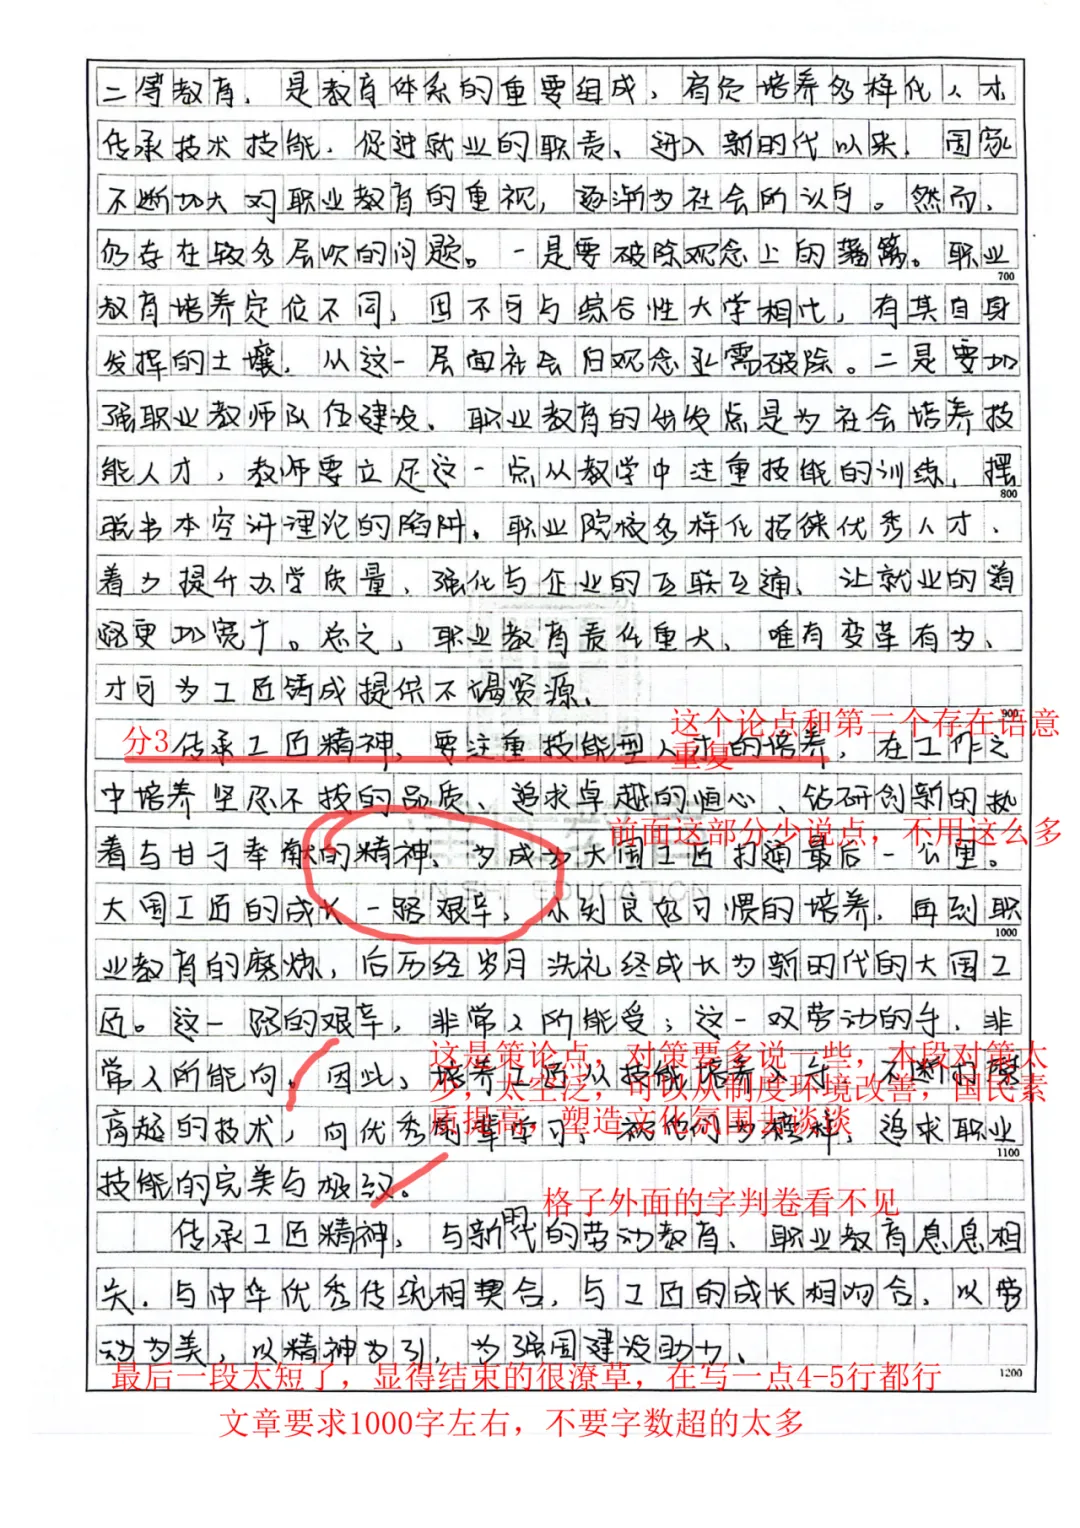 二等教育，是教育体系的重要组成，肩负培养多样化人才
传承技术技能，促进就业的职责、进入新时代以来，国家
不断加大对职业教育的重视，逐渐为社会所认可。然而，
仍存在较多层次的问题。一是要破除观念上的藩篱。职业
700
教育培养定位不同，固不可与综合性大学相比，有其自身
发挥的土壤，从这一层面社会旧观念亟需破除。二是要加
强职业教师队伍建设，职业教育的出发点是为社会培养技
能人才，教师要立足这一点从教学中注重技能的训练，摆
800
脱书本空讲理论的陷阱，职业院校多样化招徕优秀人才、
着力提升办学质量，强化与企业的互联互通，让就业的道
路更加宽广。总之，职业教育责任重大，唯有变革有为，
才可为工匠铸成提供不竭资源，
900
分3
这个论点和第二个存在语意
重复
传承工匠精神，要注重技能型人才的培养，在工作之
中培养坚忍不拔的品质、追求卓越的恒心、钻研创新的执
前面这部分少说点，不用这么多
着与甘于奉献的精神，为成为大国工匠打通最后一公里。
大国工匠的成长一路艰辛，从到良好习惯的培养，再到职
1000
业教育的磨炼，后历经岁月洗礼终成长为新时代的大国工
匠。这一路的艰辛，非常人所能受；这一双劳动的手，非
这是策论点，对策要多说一些，本段对策太
少，太空泛，可以从制度环境改善，国民素
质提高，塑造文化氛围去谈谈
常人所能向。因此，培养工匠从技能培养入手，不断打磨
高超的技术，向优秀前辈学习，视他们为榜样，追求职业
1100
技能的完美与极致。
格子外面的字判卷看不见
传承工匠精神，与新时代的劳动教育、职业教育息息相
关，与中华优秀传统相契合，与工匠的成长相吻合，以劳
动为美，以精神为引，为强国建设助力、
1200
最后一段太短了，显得结束的很潦草，在写一点4-5行都行
文章要求1000字左右，不要字数超的太多